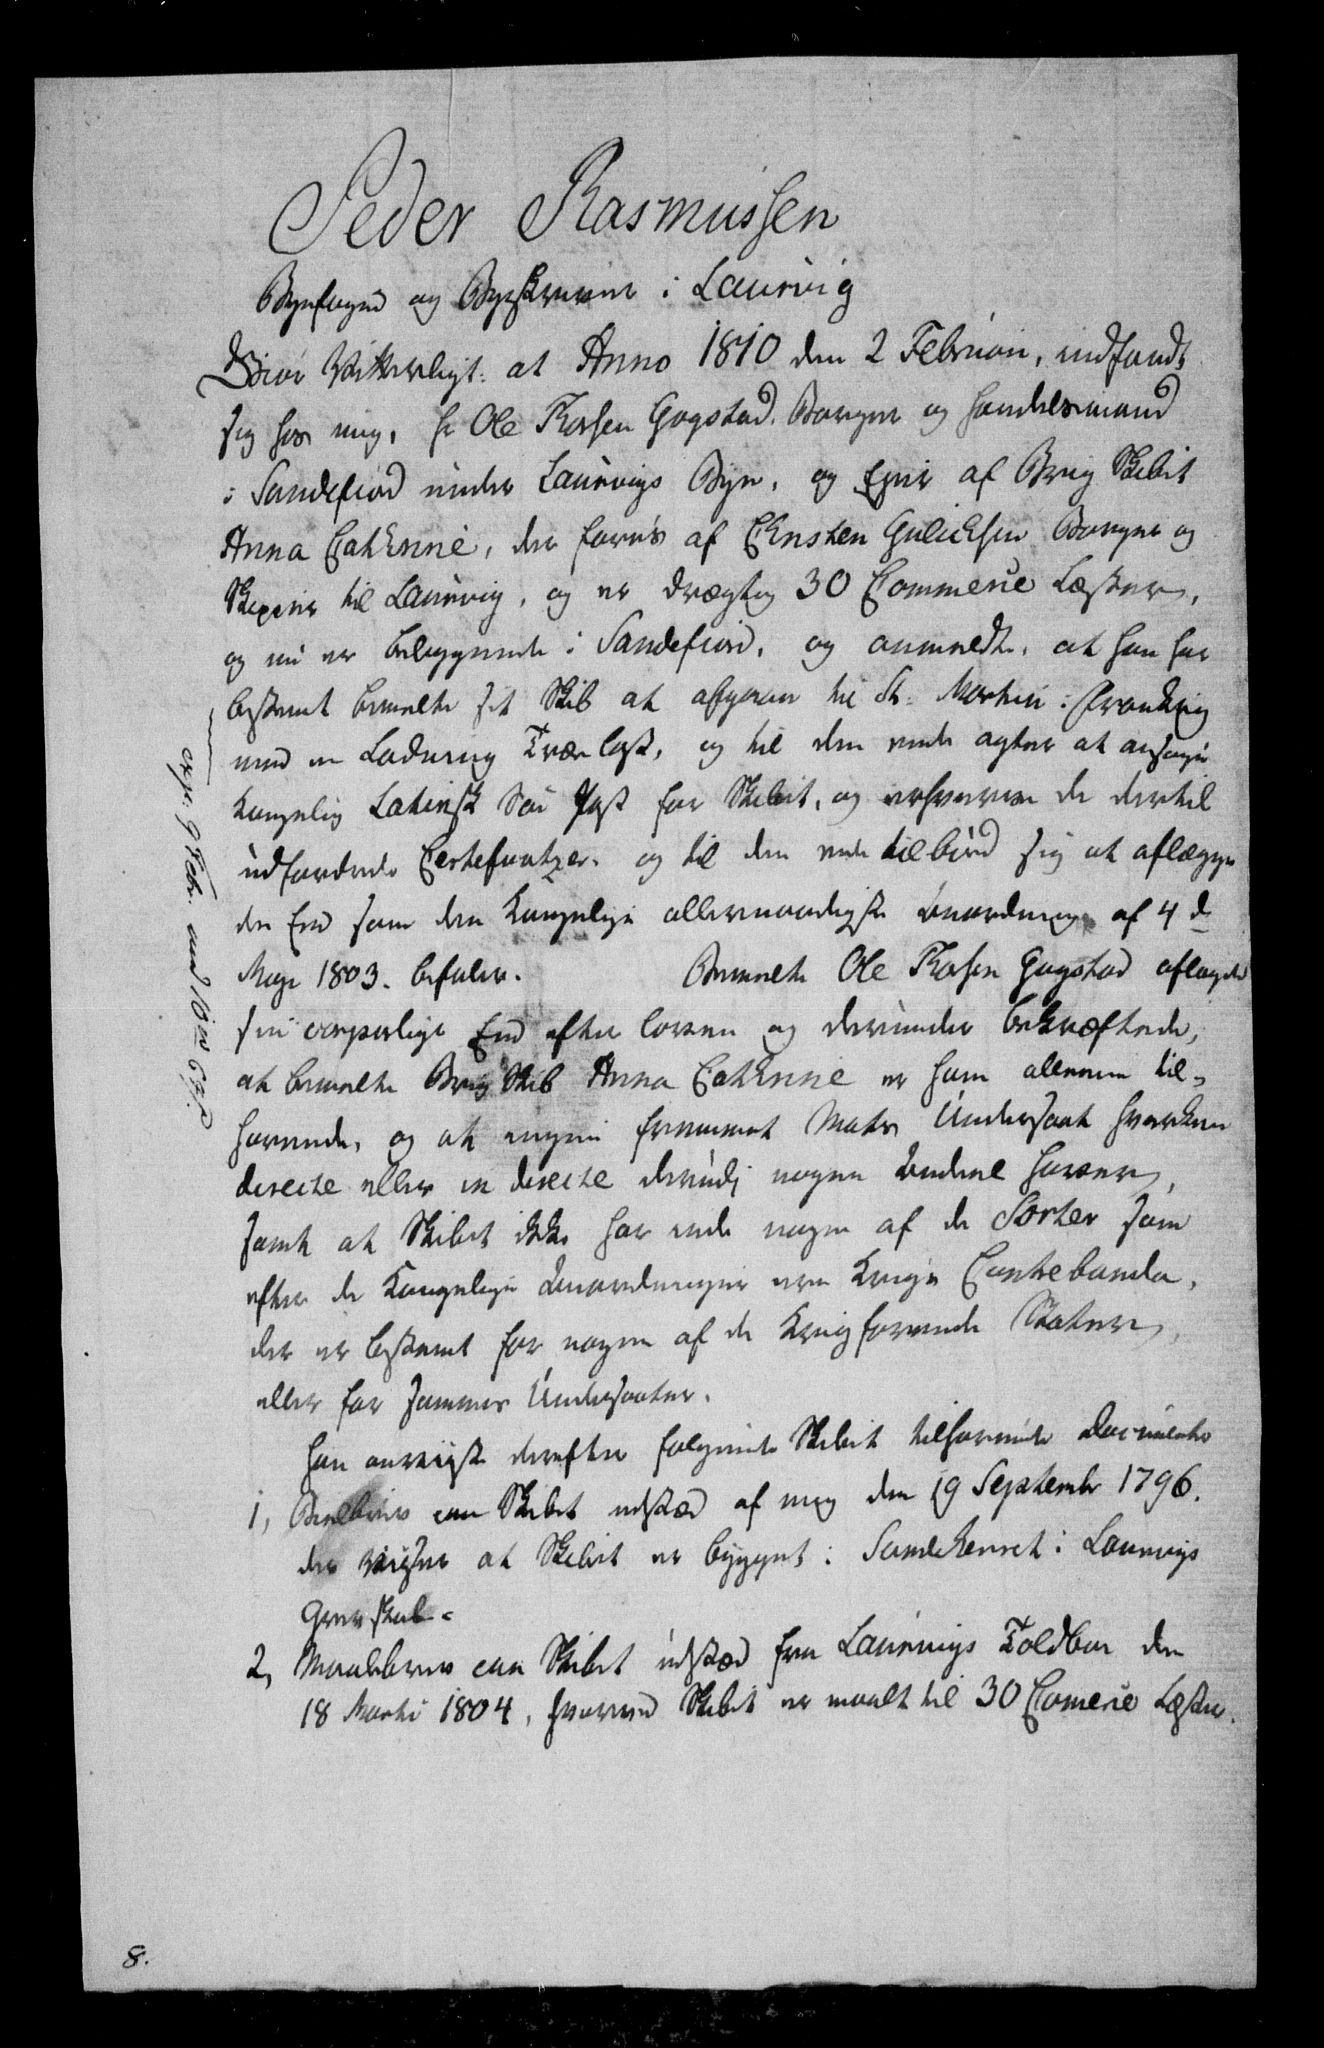 Peder Rasmussen
Byefoged og Byeskriver i Laurvig
Giør Vitterligt: at Anno 1810 den 2 Februari, indfandt
sig hos mig, Hr Ole Thorsen Gogstad Borger og Handelsmand
i Sandefiord under Laurvigs Bye, og Eyer af Brig Skibet
Anna Cathrine, der føres af Christen Gulichsen Borger og
Skipper til Laurvig, og er drægtig 30 Commerce Læster,
og nu er beliggende i Sandefiord, og anmeldte, at han har
bestemt bemelte sit Skib at afgaae til St. Martin i Frankrig
med en Ladning Trælast, og til den ende agter at ansøge
Kongelig Latinsk Søe Pass for Skibet, og erhverve de dertil
udfordrede Certeficatzer, og til den ende tilbød sig at aflægge
den Eed som den Kongelige allernaadigste Anordning af 4 d
May 1803 befaler. Bemelte Ole Thorsen Gogstad aflagde
sin corporlige Eed efter loven og derunder bekræftede,
at bemelte Brig Skib Anna Cathrine er ham alleene til-
hørende, og at ingen fremmet Mats Undersaat hverken
directe eller in directe derudj nogen Andeel haver,
samt at Skibet ikke har inde nogen af de Sorter som
efter de Kongelige Anordninger ere Krigs Contrebande,
der er bestemt for nogen af de Krigførende Staters
eller for sammes Undersaatter.
Han anviiste derefter følgende Skibet tilhørende Documenter
1, Biilbrev om Skibet udsted af mig den 19 September 1796.
der viiser at Skibet er bygget i Sandeherret i Laurvigs
Grevskab.
2, Maalebrev om Skibet udsted fra Laurvigs Toldboe den
18 Martii 1804, hvorved Skibet er maalt til 30 Comerce Læster.
exp. 9 Febr. med
8.